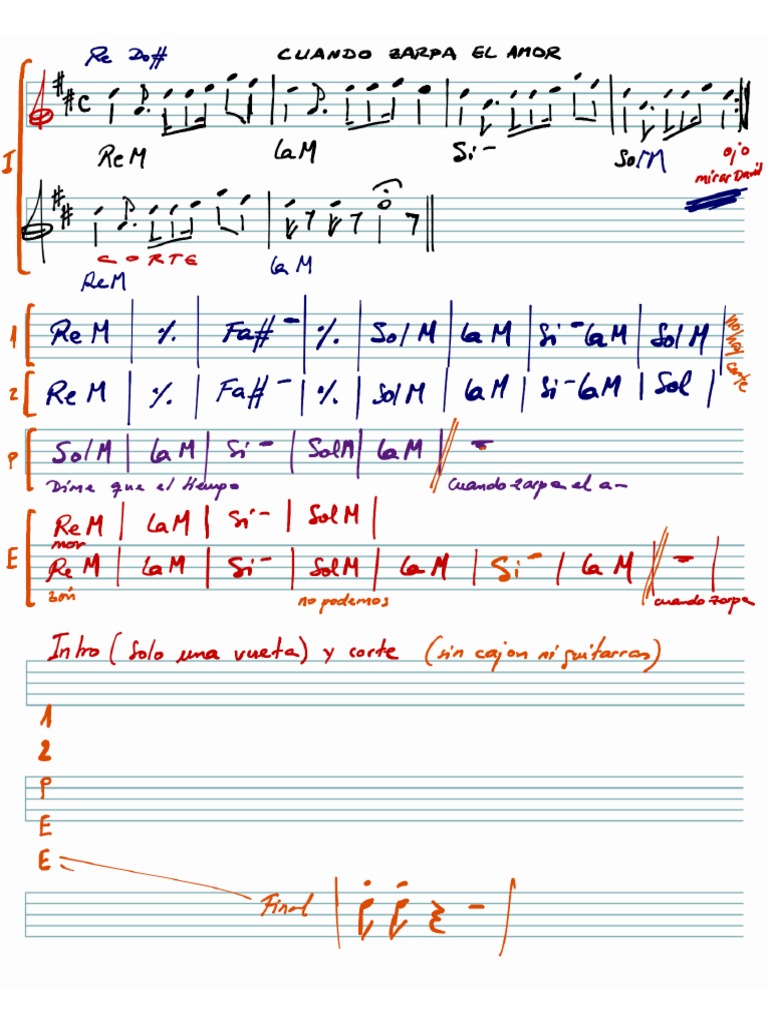 Re Do# CUANDO ZARPA EL AMOR
C
I ReM LaM Si- SolM ojo
mirar David
CORTE
ReM LaM
1 ReM | ٪ | Fa#- | ٪ | SolM | LaM | Si- LaM | SolM | no hay corte
2 ReM | ٪ | Fa#- | ٪ | SolM | LaM | Si- LaM | Sol |
P SolM | LaM | Si- | SolM | LaM // -
Dime que el tiempo Cuando zarpa el a-
E ReM | LaM | Si- | SolM |
mor
ReM | LaM | Si- | SolM | LaM | Si- | LaM // - |
zón no podemos cuando zarpa
Intro (solo una vuelta) y corte (sin cajon ni guitarras)
1
2
P
E
E
Final